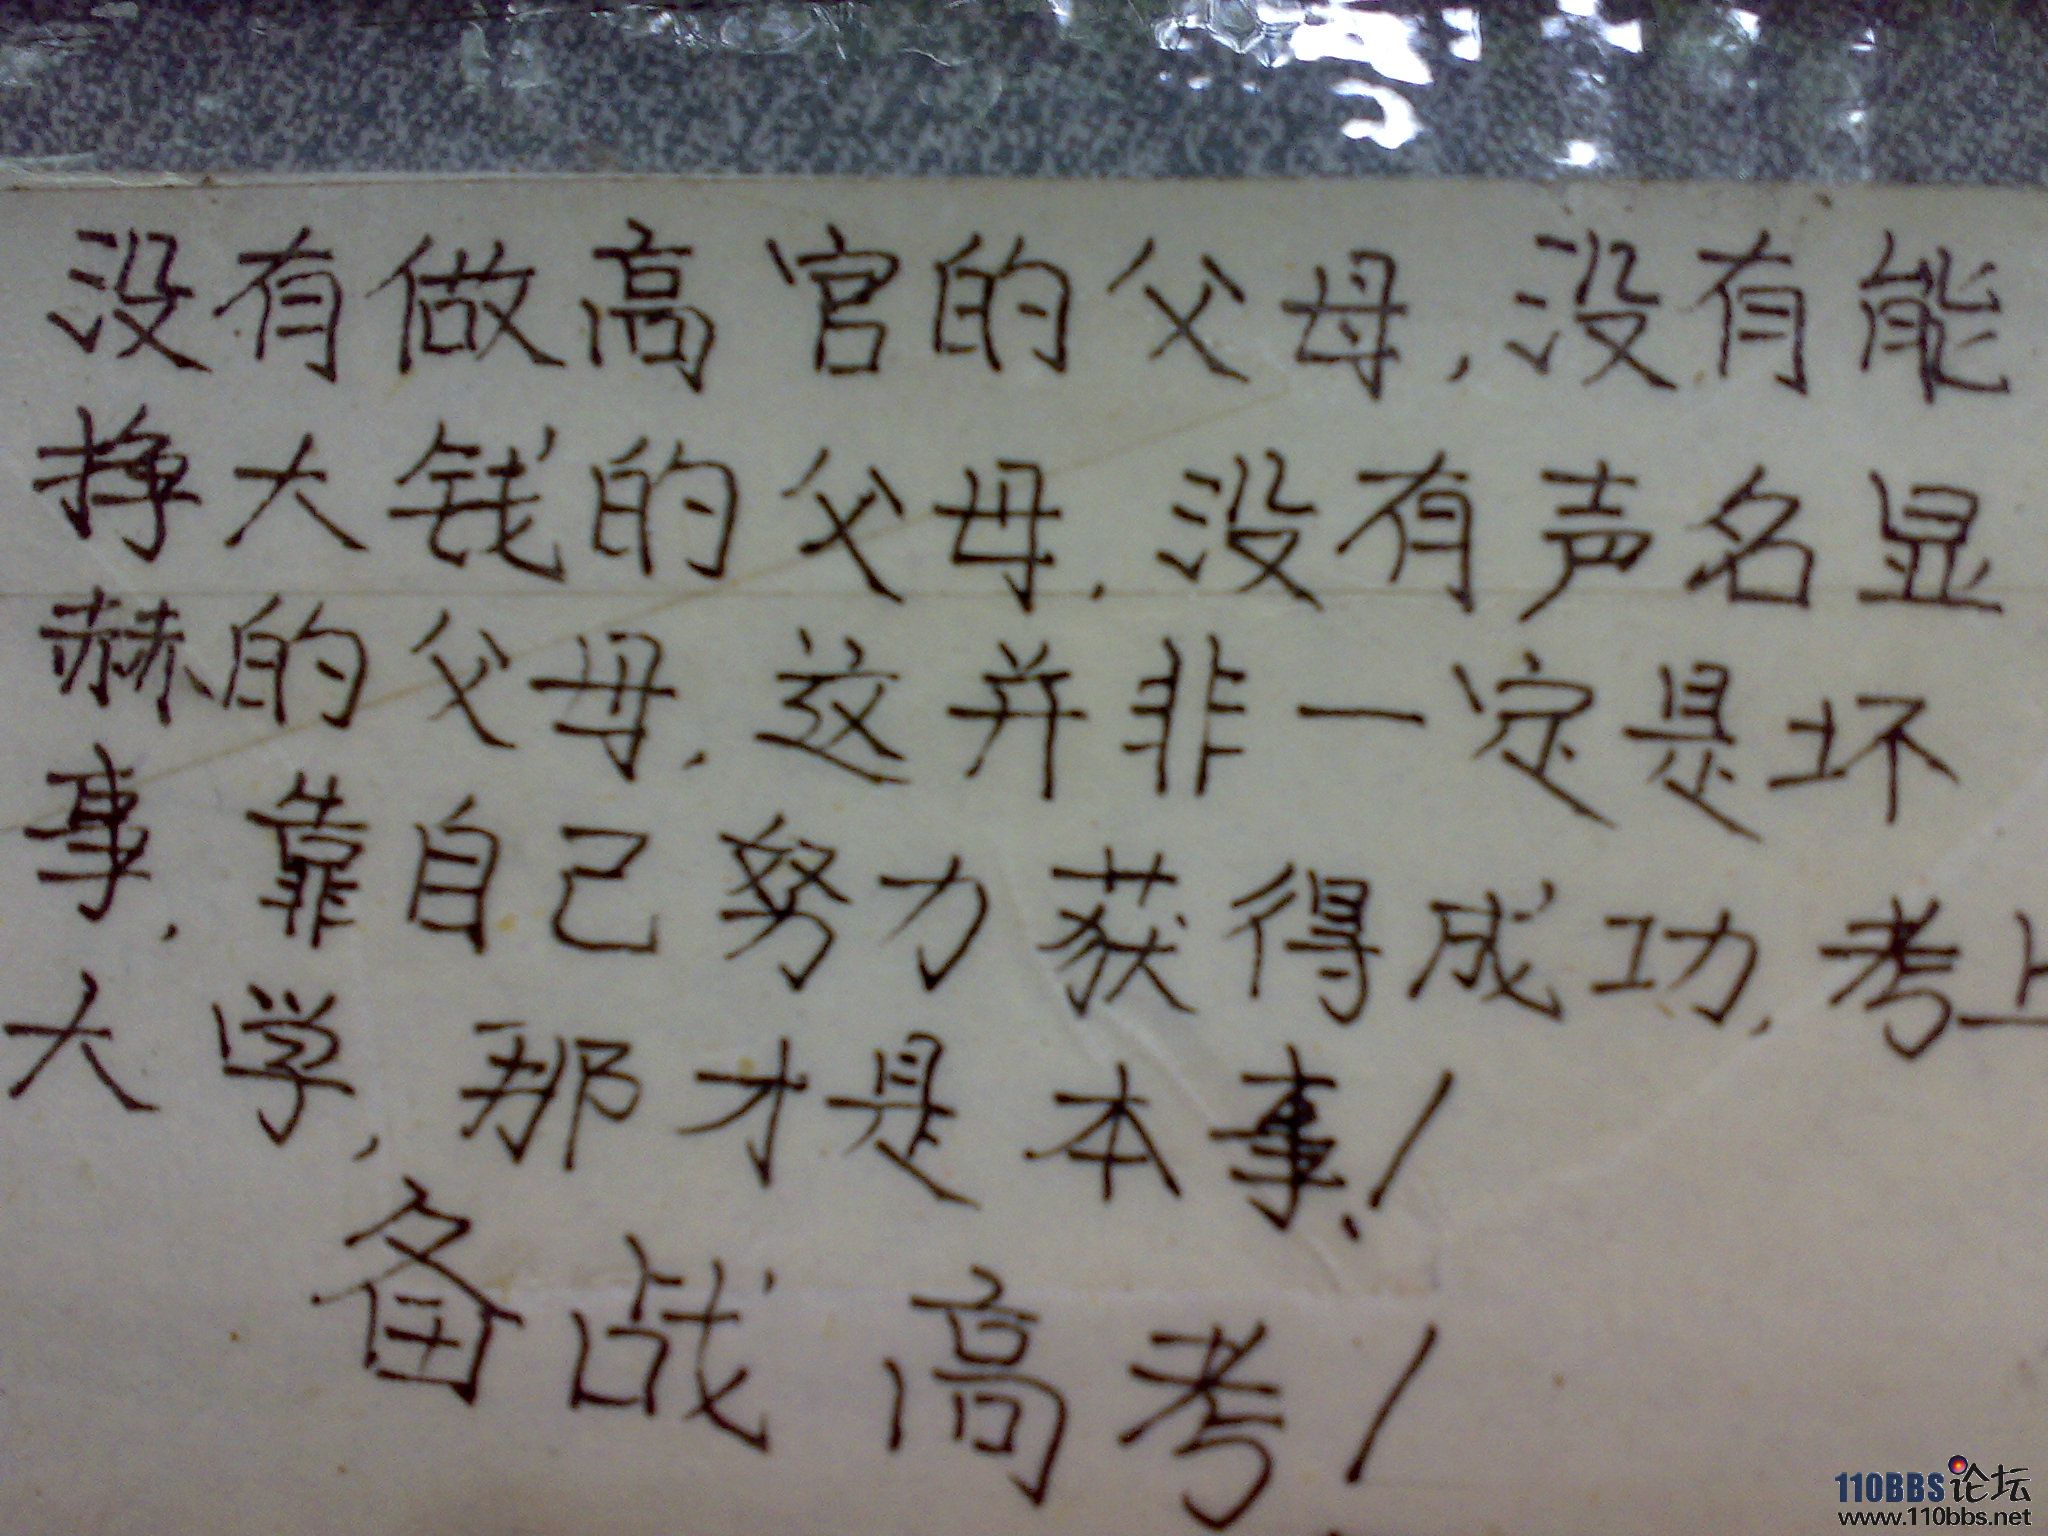 没有做高官的父母,没有能
挣大钱的父母,没有声名显
赫的父母,这并非一定是坏
事,靠自己努力获得成功,考上
大学,那才是本事!
备战高考!
110BBS论坛
www.110bbs.net